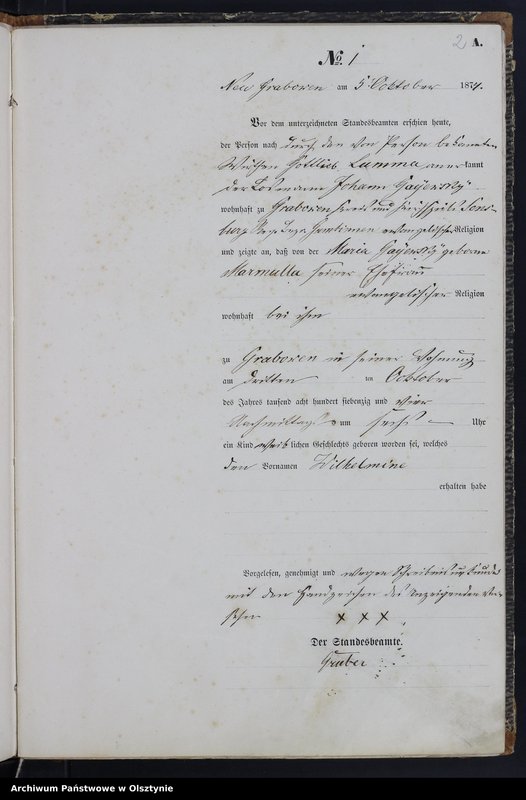 2 A.
№ 1
Neu Graborven am 5 October 1874.
Vor dem unterzeichneten Standesbeamten erschien heute,
der Person nach durch den von Person bekannten
Gottlieb Lumma anerkannt
der Losmann Johann Gayewsky
wohnhaft zu Graboven Kreis und
burg Gumbinnen evangelischer Religion
und zeigte an, daß von der Maria Gayewsky geborne
Marmulla seiner Ehefrau
evangelischer Religion
wohnhaft bei ihm
zu Graboven in seiner Wohnung
am dritten ten October
des Jahres tausend acht hundert siebenzig und vier
Nachmittags um sechs Uhr
ein Kind weiblichen Geschlechts geboren worden sei, welches
den Vornamen Wilhelmine
erhalten habe
Vorgelesen, genehmigt und wegen Schreibensunkunde
mit den Handzeichen des Anzeigenden ver-
sehen
x x x
Der Standesbeamte.
Gruber
Archiwum Państwowe w Olsztynie